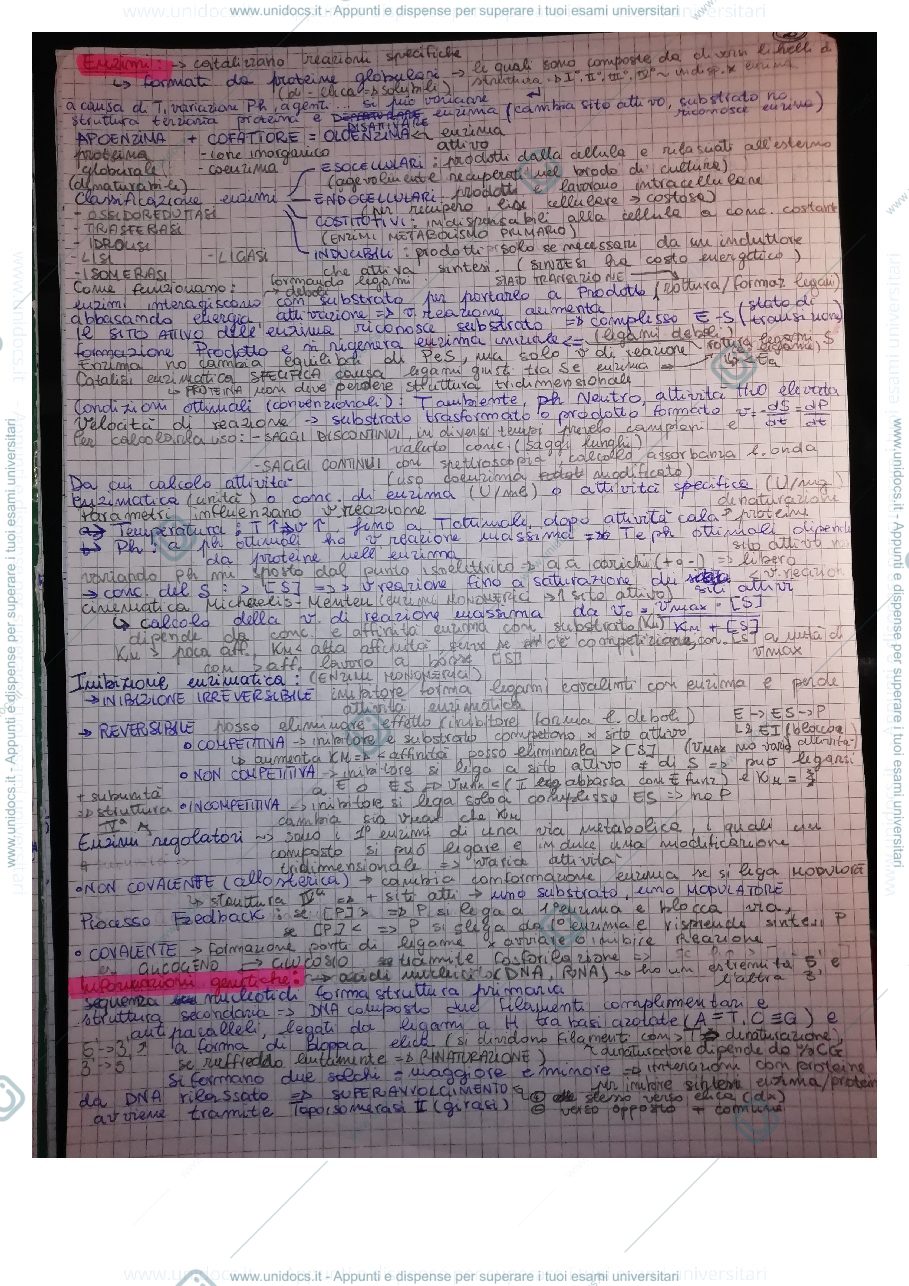 www.unidocs.it - Appunti e dispense per superare i tuoi esami universitari
Enzimi: → catalizzano reazioni specifiche
↳ formati da proteine globulari → le quali sono composte da diversi livelli di
(α-elica → solubili) struttura
a causa di T, variazioni Ph, agenti... si può variare
struttura terziaria proteina e DISATTIVARE enzima (cambia sito attivo, substrato no riconosce enzima)
APOENZIMA + COFATTORE = OLOENZIMA ← enzima attivo
proteina - ione inorganico
globulare - coenzima
(denaturabile)
ESOCELLULARI: prodotti dalla cellula e rilasciati all'esterno
(agevolmente recuperati nel brodo di culture)
Classificazione enzimi
ENDOCELLULARI: prodotti e lavorano intracellulare
(per recupero lisi cellulare → costosa)
- OSSIDOREDUTTASI
- TRASFERASI
- IDROLISI
- LISI - LIGASI
- ISOMERASI
COSTITUTIVI: indispensabili alla cellula a conc. costante
(ENZIMI METABOLISMO PRIMARIO)
INDUCIBILI: prodotti solo se necessari da un induttore
che attiva sintesi. (SINTESI ha costo energetico)
Come funzionano: formando legami deboli STATO TRANSIZIONE
enzimi interagiscono con substrato per portarlo a Prodotto (rottura/formaz legami)
abbassando energia attivazione => v reazione aumenta
le SITO ATTIVO dell'enzima riconosce substrato => complesso E-S (stato di transizione)
formazione Prodotto e si rigenera enzima iniziale <= (legami deboli)
Enzima no cambia equilibri di P e S, ma solo v di reazione
Catalisi enzimatica SPECIFICA causa legami giusti tra S e enzima
↳ PROTEINA non deve perdere struttura tridimensionale
Condizioni ottimali (convenzionali): T ambiente, ph Neutro, attività H2O elevata
Velocità di reazione → substrato trasformato o prodotto formato v = -dS/dt = dP/dt
Per calcolarla uso: - SAGGI DISCONTINUI, in diversi tempi prelevo campioni e
valuto conc. (saggi lunghi)
- SAGGI CONTINUI con spettroscopia, calcolo assorbanza l. onda
(uso coenzima modificato)
Da cui calcolo attività
enzimatica (unità) o conc. di enzima (U/ml) o attività specifica (U/mg)
Parametri influenzano v reazione
→ Temperatura: T↑ => v↑, fino a T ottimali, dopo attività cala → denaturazione proteine
→ Ph: a ph ottimali ho v reazione massima => T e ph ottimali dipende
da proteine nell'enzima
variando ph mi sposto dal punto isoelettrico → aa carichi (+ o -)
→ conc. del S: > [S] => > v reazione fino a saturazione dei siti attivi
cinematica Michaelis-Menten (enzimi MONOMERICI → 1 sito attivo)
↳ calcolo della v. di reazione massima da v0 = vmax · [S] / KM + [S]
dipende da conc. e affinità enzima con substrato (KM)
KM > poca aff., KM < alta affinità
con > aff. lavoro a bassa [S]
Inibizione enzimatica: (ENZIMI MONOMERICI)
→ INIBIZIONE IRREVERSIBILE inibitore forma legami covalenti con enzima e perde
attività enzimatica
→ REVERSIBILE posso eliminare effetto (inibitore forma l. deboli) E → ES → P
∘ COMPETITIVA → inibitore e substrato competono x sito attivo ↳ EI (blocca attività)
↳ aumenta KM => < affinità posso eliminarla > [S] (vmax no varia)
∘ NON COMPETITIVA → inibitore si lega a sito attivo ≠ di S => può legarsi
a E o ES => vmax <
∘ INCOMPETITIVA → inibitore si lega solo a complesso ES => no P
cambia sia vmax che KM
+ subunità
=> struttura IVª
Enzimi regolatori → sono i 1° enzimi di una via metabolica, i quali un
composto si può legare e induce una modificazione
tridimensionale => varia attività
∘ NON COVALENTE (allosterica) → cambia conformazione enzima se si lega MODULATORE
↳ struttura IVª => + siti atti → uno substrato, uno MODULATORE
Processo Feedback: se [P] > => P si lega a 1° enzima e blocca via,
se [P] < => P si slega da 1° enzima e risprende sintesi P
∘ COVALENTE → formazione
GLICOGENO → GLUCOSIO tramite fosforilazione =>
Informazioni genetiche: → acidi nucleici (DNA, RNA) → ho un estremità 5' e
l'altra 3'
sequenza nucleotidi forma struttura primaria
struttura secondaria => DNA composto due filamenti complimentari e
antiparalleli, legati da legami a H tra basi azotate (A=T, C≡G) e
5'→3' a forma di Doppia elica (si dividono filamenti con > T => denaturazione,
3'→5' se raffreddo lentamente => RINATURAZIONE)
Si formano due solchi = maggiore e minore => interazioni con proteine
da DNA rilassato => SUPERAVVOLGIMENTO
avviene tramite Topoisomerasi II (girasi)
⊕ stesso verso elica (dx)
⊖ verso opposto + comune
www.unidocs.it - Appunti e dispense per superare i tuoi esami universitari